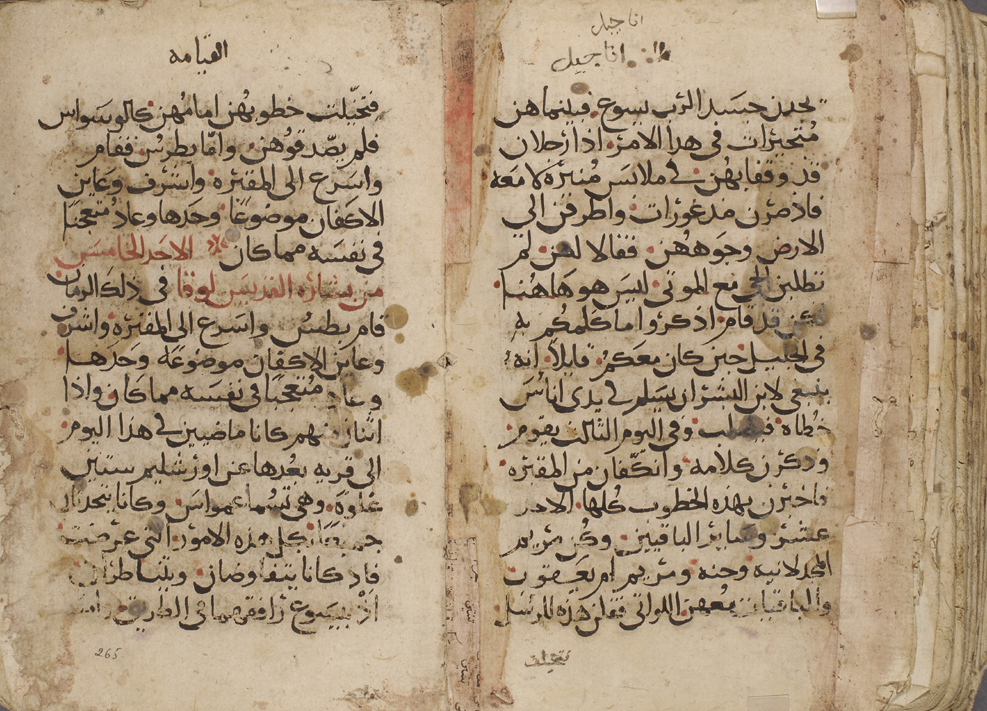 اناجيل
اناجيل
يجدن جسد الرب يسوع فبينما هن
متحيرات في هذا الامر اذا رجلان
قد وقفا بهن في ملابس منيرة لامعه
فاذ صرن مذعورات واطرقن الى
الارض وجوههن فقالا لهن لم
تطلبن الحي مع الموتى ليس هو هاهنا
لكن قد قام اذكروا ما كلمكم به
في الجليل حين كان معكم قايلا انه
ينبغي لابن البشر ان يسلم في يدى اناس
خطاه فيصلب وفي اليوم الثالث يقوم
وذكرن كلامه وانكفان من المقبره
فاخبرن بهذه الخطوب كلها الاحد
عشر وساير الباقيين وكن مريم
المجدلانيه وحنه ومريم ام يعقوب
والباقيات معهن اللواتي قلن هذه للرسل
فتخيلت
القيامه
فتخيلت خطوبهن امامهن كالوسواس
فلم يصدقوهن واما بطرس فقام
واسرع الى المقبره واشرف وعاين
الاكفان موضوعا وحدها وعاد متعجبا
في نفسه مما كان الاحد الخامس
من بشاره القديس لوقا في ذلك الزمان
قام بطرس واسرع الى المقبره واشرف
وعاين الاكفان موضوعه وحدها
وعاد متعجبا في نفسه مما كان واذا
اثنان منهم كانا ماضيين في هذا اليوم
الى قريه بعدها عن اورشليم ستين
غلوة وهي تسما عمواس وكانا يتحدثان
جميعا كل هذه الامور التي عرضت
فاذ كانا يتفاوضان ويتناظران
اذ بيسوع رافقهما في الطريق
265